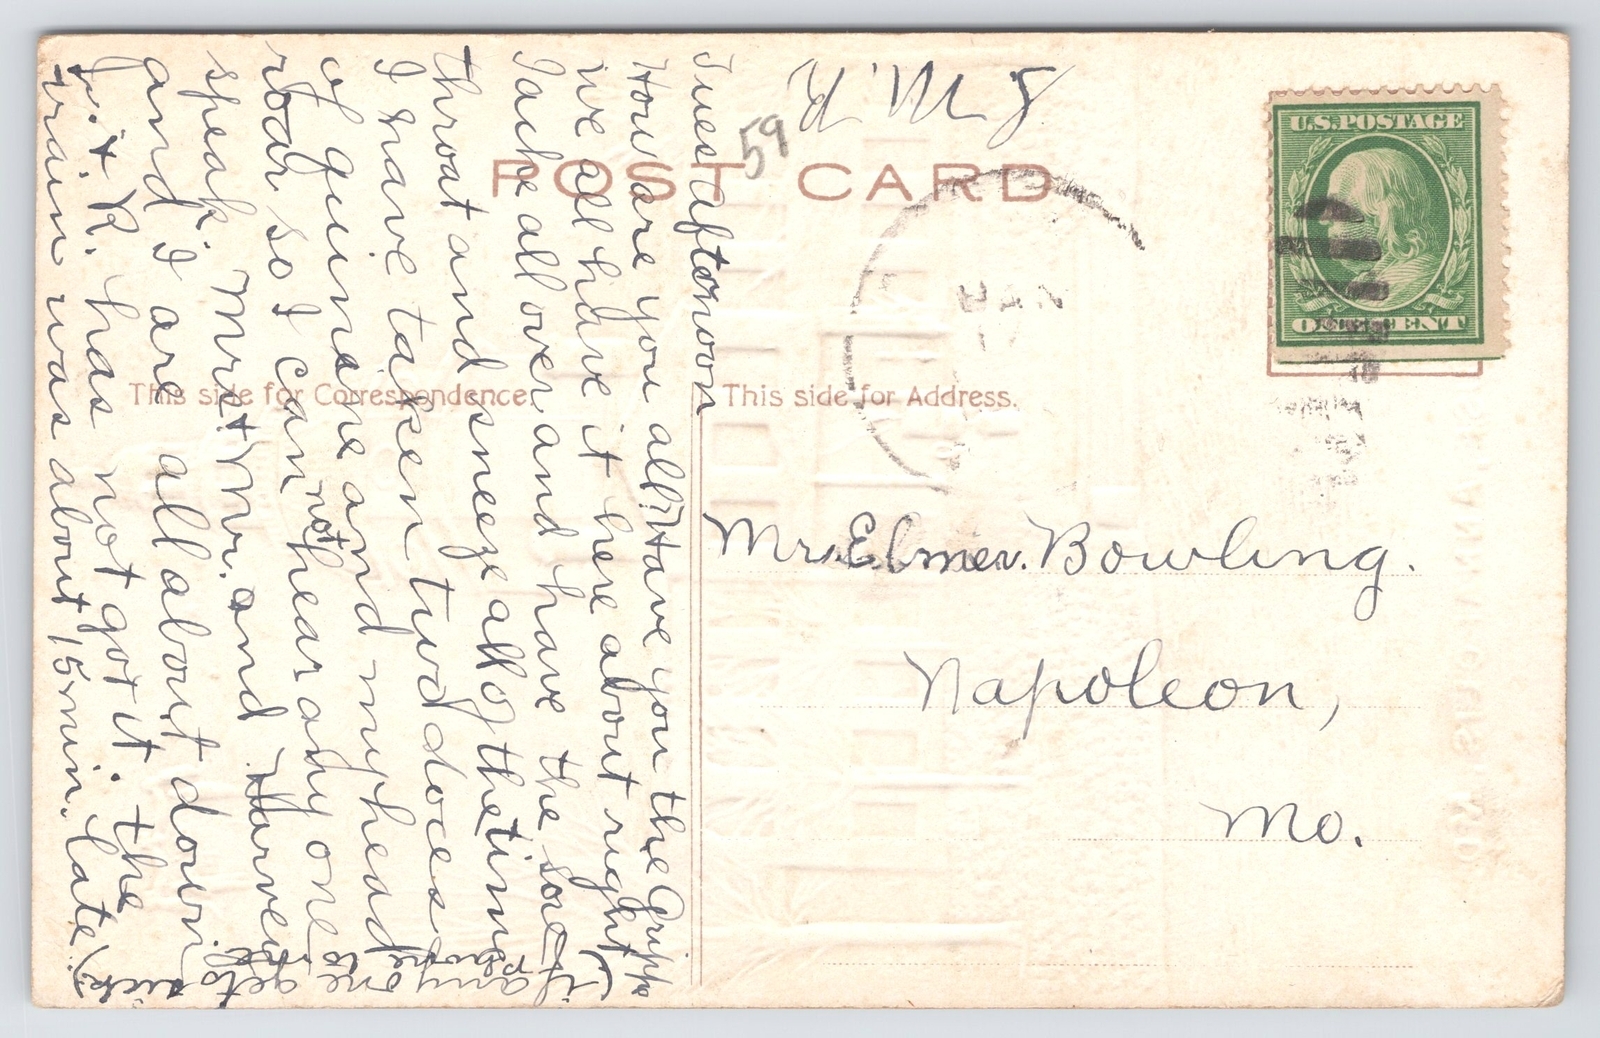 Tues afternoon
How are you all. Have you the Gripp
we all have it here about right
I ache all over and have the sore
throat and sneeze all of the time
I have taken two doces
of quinine and my head
roar so I can not hear any one
speak. Mrs + Mr. and Harvey
and I are all about down
with it. R. has not got it. the
train was about 15 min. late
(if any one gets sick
phone to me)
59
POST CARD
This side for Correspondence.
This side for Address.
U.S. POSTAGE
ONE CENT
Mrs. Elmer Bowling.
Napoleon,
Mo.